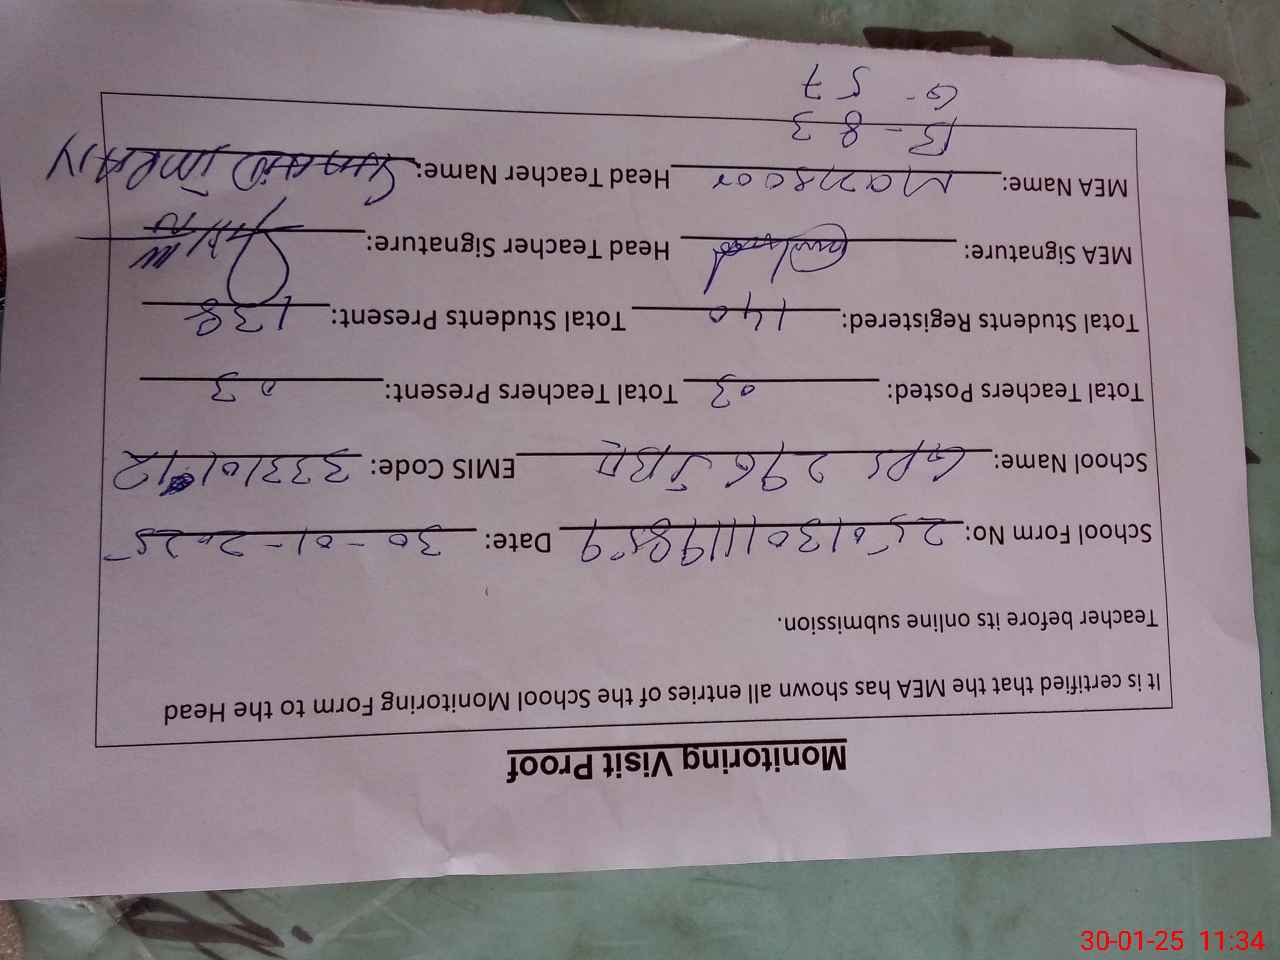 Monitoring Visit Proof
It is certified that the MEA has shown all entries of the School Monitoring Form to the Head
Teacher before its online submission.
School Form No: 2501301119859 Date: 30-01-2025
School Name: GPS 296 JB II EMIS Code:
Total Teachers Posted: 03 Total Teachers Present: 03
Total Students Registered: 140 Total Students Present: 138
MEA Signature: Head Teacher Signature:
MEA Name: Manzoor Head Teacher Name:
B - 83
G - 57
30-01-25 11:34